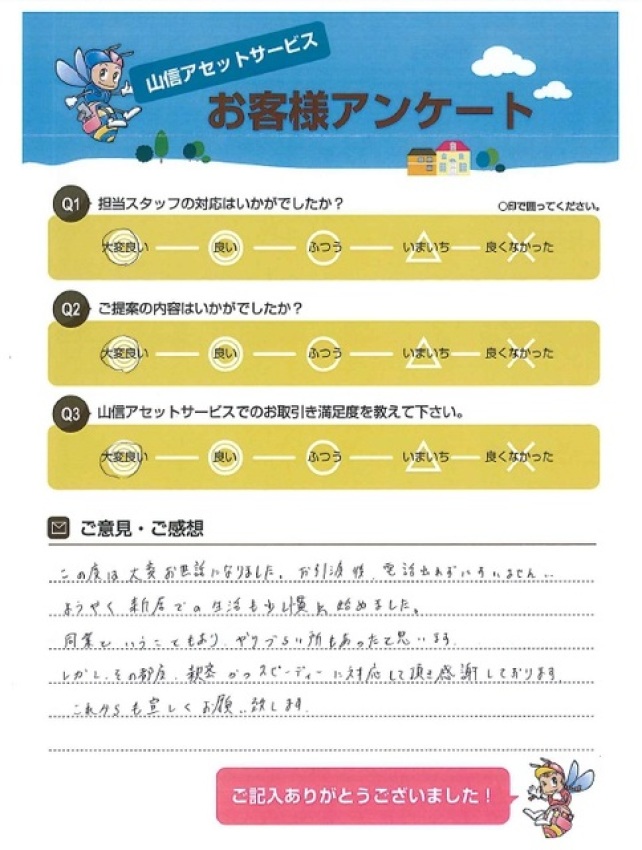 山信アセットサービス
お客様アンケート
Q1 担当スタッフの対応はいかがでしたか？ ○印で囲ってください。
大変良い 良い ふつう いまいち 良くなかった
Q2 ご提案の内容はいかがでしたか？
大変良い 良い ふつう いまいち 良くなかった
Q3 山信アセットサービスでのお取引き満足度を教えて下さい。
大変良い 良い ふつう いまいち 良くなかった
ご意見・ご感想
この度は大変お世話になりました。お引渡後、電話出れずにすいません。
ようやく新居での生活も少し慣れ始めました。
同業ということもあり、やりづらい所もあったと思います。
しかし、その都度、親密かつスピーディーに対応して頂き感謝しております。
これからも宜しくお願い致します。
ご記入ありがとうございました！